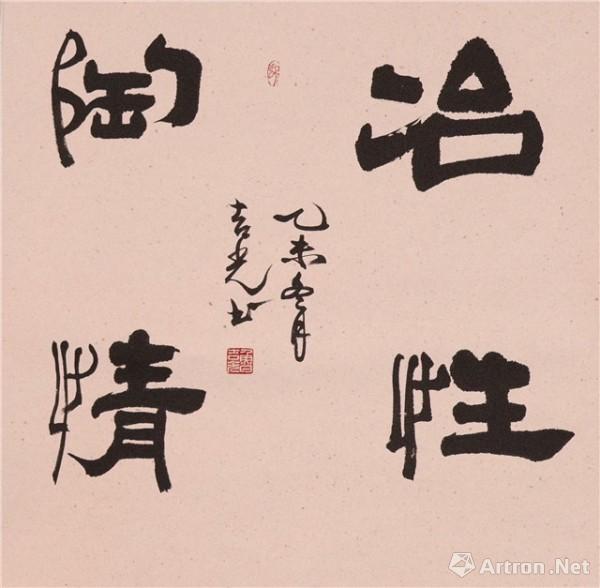 冶性
陶情
乙未冬月
吉光书
Artron.Net